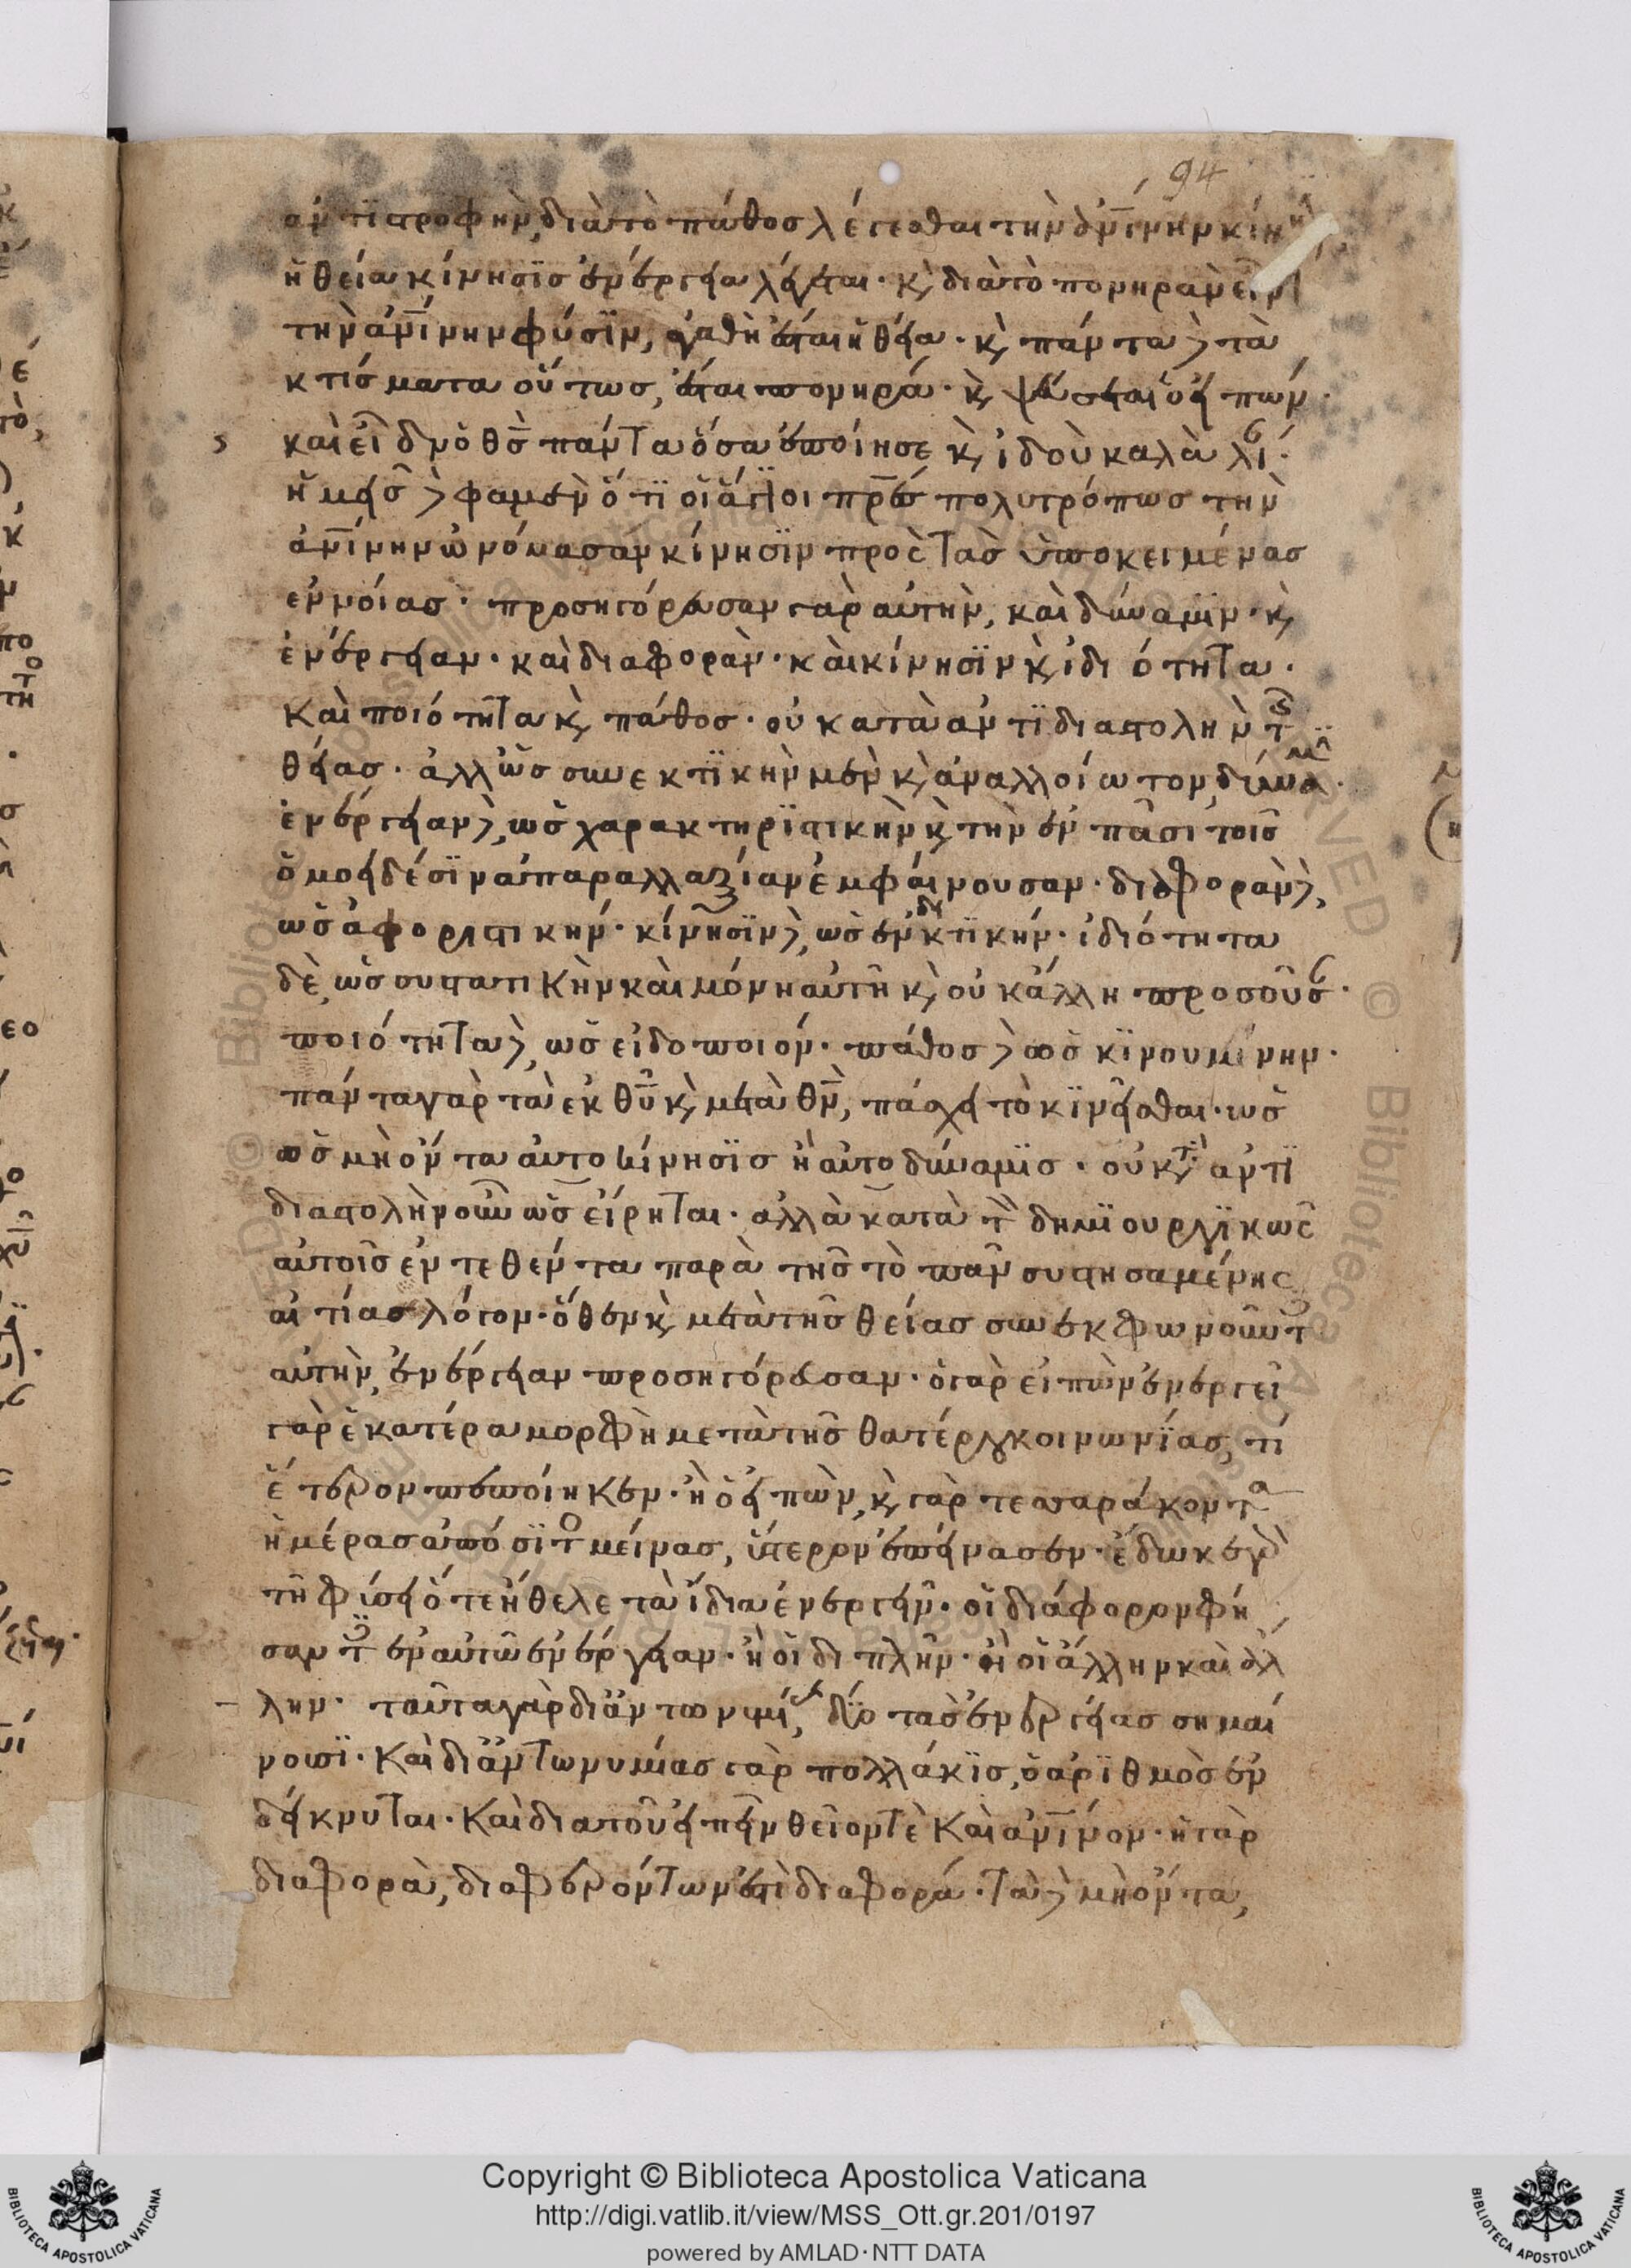 94
ἀντιστροφὴν, διὰ τὸ πάθος λέγεσθαι τὴν ἀνίνην κίνη
ἡ θεία κίνησις ἐνέργεια λέγεται· κ διὰ τὸ πονηρὰν εἶν
τὴν ἀνίνην φύσιν, ἀγαθὴ ἔσται ἡ θεία· κ πάντα δὲ τὰ
κτίσματα οὕτως, ἔσται πονηρά· κ ψεύσεται ὁ εἰπών·
καὶ εἶδεν ὁ θς πάντα ὅσα ἐποίησε κ ἰδοὺ καλὰ λί·
ἡμεῖς δὲ φαμὲν ὅτι οἱ ἅγιοι πρες πολυτρόπως τὴν
ἀνίνην ὠνόμασαν κίνησιν πρὸς τὰς ὑποκειμένας
ἐννοίας· προσηγόρευσαν γὰρ αὐτὴν, καὶ δύναμιν· κ
ἐνέργειαν· καὶ διαφορὰν· καὶ κίνησιν κ ἰδιότητα·
καὶ ποιότητα κ πάθος· οὐ κατὰ ἀντιδιαστολὴν τῆς
θείας· ἀλλ' ὡς συνεκτικὴν μὲν κ ἀναλλοίωτον, δύναμιν·
ἐνέργειαν δὲ, ὡς χαρακτηριστικὴν κ τὴν ἐν πᾶσι τοῖς
ὁμοειδέσιν ἀπαραλλαξίαν ἐμφαίνουσαν· διαφορὰν δὲ,
ὡς ἀφοριστικήν· κίνησιν δὲ, ὡς ἐνδεικτικήν· ἰδιότητα
δὲ, ὡς συστατικὴν καὶ μόνη αὐτῇ κ οὐκ ἄλλη προσοῦσ·
ποιότητα δὲ, ὡς εἰδοποιόν· πάθος δὲ ὡς κινουμένην·
πάντα γὰρ τὰ ἐκ θῦ κ μετὰ θν, πάσχει τὸ κινεῖσθαι· ὡς
ὡς μὴ ὄντα αὐτοκίνησις ἢ αὐτοδύναμις· οὐ κτ ἀντι
διαστολὴν οὖν ὡς εἴρηται· ἀλλὰ κατὰ τὸν δημιουργικῶς
αὐτοῖς ἐντεθέντα παρὰ τῆς τὸ πᾶν συστησαμένης
αἰτίας λόγον· ὅθεν κ μετὰ τῆς θείας συνεκφωνοῦντ
αὐτὴν, ἐνέργειαν προσηγόρευσαν· ὁ γὰρ εἰπὼν ἐνεργεῖ
γὰρ ἑκατέρα μορφὴ μετὰ τῆς θατέρου κοινωνίας, τί
ἕτερον πεποίηκεν· ἢ ὁ εἰπὼν, κ γὰρ τεσσαράκοντα
ἡμέρας ἀπόσιτο μείνας, ὕστερον ἐπείνασεν· ἔδωκε γὰρ
τῇ φύσει ὅτε ἤθελε τὰ ἴδια ἐνεργεῖν· οἱ διάφορον φή
σαν τς ἐν αὐτῷ ἐνέργειαν· ἢ οἱ διπλῆν· ἢ οἱ ἄλλην καὶ ἄλ
λην· ταῦτα γὰρ δι' ἀντωνυμί δύο τὰς ἐνεργείας σημαί
νουσι· Καὶ δι' ἀντωνυμίας γὰρ πολλάκις, ὁ ἀριθμὸς ἐν
δείκνυται· Καὶ διὰ τοῦ εἰπεῖν θεῖον τὲ καὶ ἀνίνον· ἡ γὰρ
διαφορὰ, διαφερόντων ἐστὶ διαφορά· τὰ δὲ μὴ ὄντα,
Copyright © Biblioteca Apostolica Vaticana
http://digi.vatlib.it/view/MSS_Ott.gr.201/0197
powered by AMLAD·NTT DATA